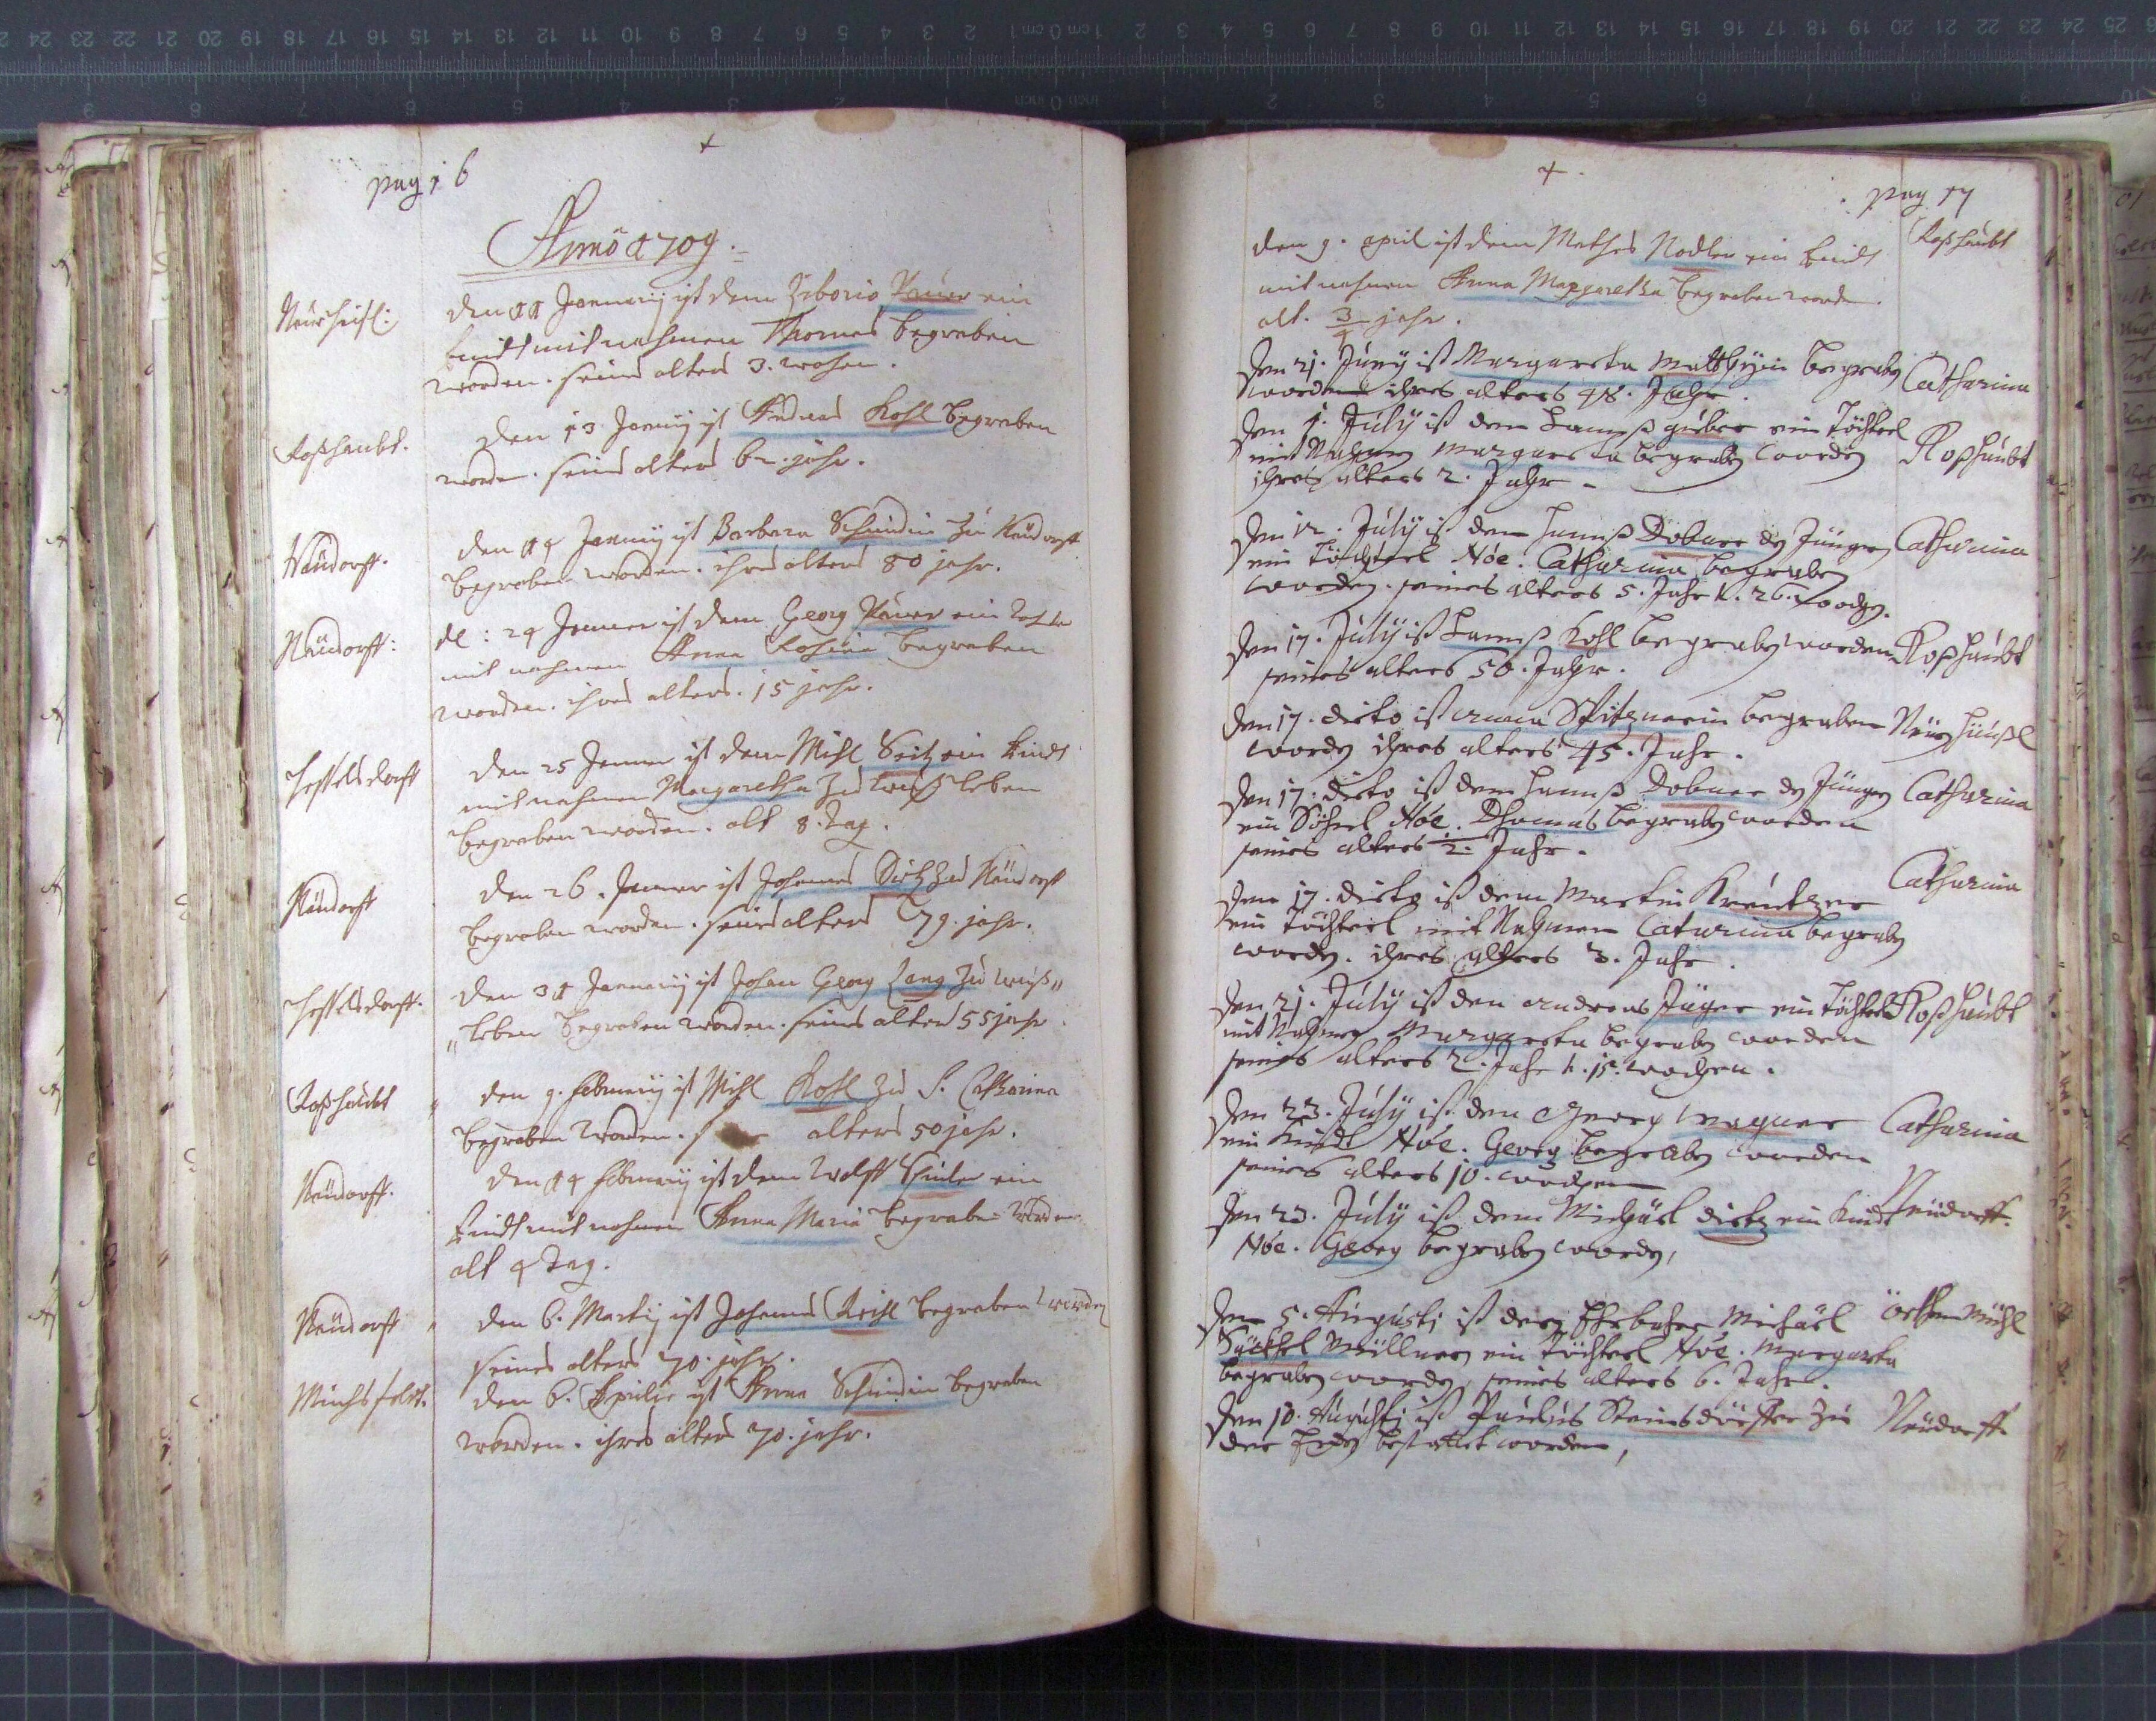 pag 16
Anno 1709.
Neüheüsl:
den 11 January ist dem Ziborio Paur ein
kindt mit nahmen Thomas begraben
worden. seines alters 3. wohen.
Roßhaubt.
den 13 January ist Andreas Kohl begraben
worden. seines alters 62. jahr.
Neüdorff.
den 14 January ist Barbara Schmidin zu Neüdorff
begraben worden. ihres alters 80 jahr.
Neüdorff:
de: 24 Jenner ist dem Georg Paur ein
mit nahmen Anna Rosina begraben
worden. ihres alters. 15 jahr.
Hesselsdorff
den 25 Jenner ist dem Mihl Seitz ein kindt
mit nahmen Margaretha zu weiß leben
begraben worden. alt 8. tag.
Neüdorff
den 26. Jenner ist Johannes Dietz zu Neüdorff
begraben worden. seines alters 79. jahr.
Hesselsdorff.
den 31 January ist Johan Georg Lang zu weiß„
„leben begraben worden. seines alters 55 jahr
Roßhaubt
den 9. february ist Mihl Kohl zu S. Catharina
begraben worden. alters 50 jahr.
Neüdorff.
den 14 february ist dem Wolff ein
kindt mit nahmen Anna Maria begraben worden
alt 4 tag.
Neüdorff
den 6. Marty ist Johannes Reihl begraben worden
seines alters 70. jahr.
den 6. Aprilis ist Anna Schmidin begraben
worden. ihres alters 70. jahr.
pag 17
den 9. april ist dem Mathes Nodler ein kindt
Roßhaubt
mit nahmen Anna Margaretha begraben worden.
alt. 3/4 jahr.
Den 21. Juny ist Margareta Matthyin begraben
Catharina
worden ihres alters 48. Jahr.
Den 1. July ist dem Hannß grüber ein Töchterl
Roßhaubt
mit Nahmen Margareta begraben worden
ihres alters 2. Jahr.
Den 12. July ist dem Hannß Dobner der Jünger
Catharina
ein Töchterl Nõe. Catharina begraben
worden. seines alters 5. Jahr k. 26. wochen.
Den 17. July ist Hannß Kohl begraben worden
Roßhaubt
seines alters 56. Jahr.
Den 17. dicto ist anna Spitznerin begraben
Neüheüßl
worden ihres alters 45. Jahr.
Den 17. dicto ist dem Hannß Dobner der Jünger
Catharina
ein Söherl Nõe. Thomas begraben worden
seines alters 2. Jahr.
Den 17. dicto ist dem Martin Kreützer
Catharina
ein Töchterl mit Nahmen Catarina begraben
worden. ihres alters 3. Jahr.
Den 21. July ist den andreas Jäger ein Töchterl
Roßhaubt
mit Nahmen Margareta begraben worden
seines alters 2. Jahr k. 15. wochen.
Den 23. July ist den Georg wagner
Catharina
ein Kindt Nõe. Georg begraben worden
seines alters 10. wochen
Den 23. July ist dem Michäel dietz ein Kindt
Neüdorff.
Nõe. Georg begraben worden,
Den 5. Augusti ist dem Ehrbahren Michäel
Müllner ein Töchterl Nõe. Margareta
begraben worden, seines alters 6. Jahr.
Den 10. Augusti ist Paulus Steinsdörffer zu
Neüdorff.
der Erden bestattet worden,